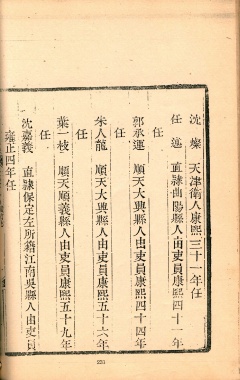 沈燦　天津衛人康熙三十一年任
任選　直隸曲陽縣人由吏員康熙四十一年
任
郭承運　順天大興縣人由吏員康熙四十四年
任
朱人龍　順天大興縣人由吏員康熙五十六年
任
葉一枝　順天順義縣人由吏員康熙五十九年
任
沈嘉義　直隸保定左所籍江南吳縣人由吏員
雍正四年任
223